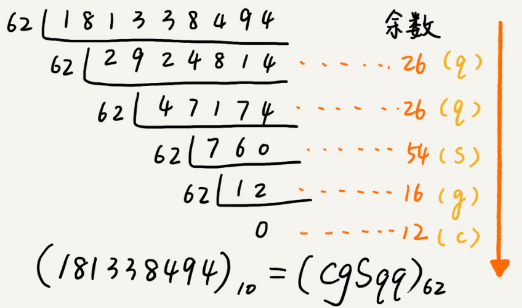 62 181338494 余数
62 2924814 ...... 26 (q)
62 47174 ...... 26 (q)
62 760 ...... 54 (S)
62 12 ...... 16 (g)
0 ...... 12 (c)
(181338494)₁₀ = (cgSqq)₆₂